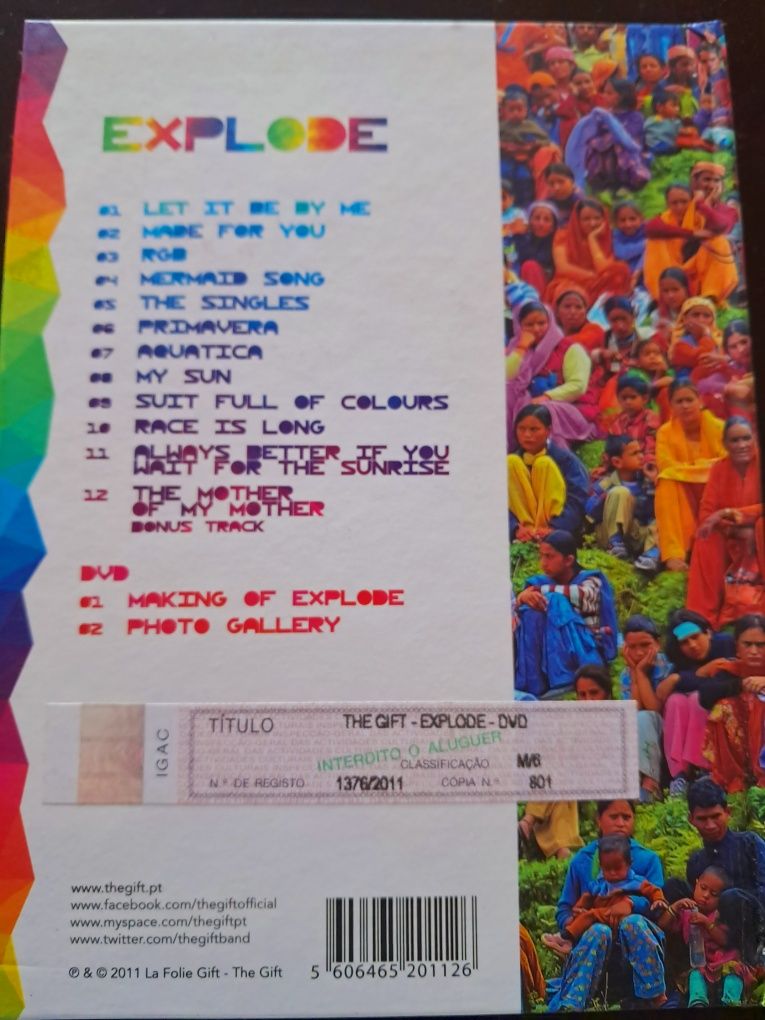 EXPLODE
01 LET IT BE BY ME
02 MADE FOR YOU
03 RGB
04 MERMAID SONG
05 THE SINGLES
06 PRIMAVERA
07 AQUATICA
08 MY SUN
09 SUIT FULL OF COLOURS
10 RACE IS LONG
11 ALWAYS BETTER IF YOU
WAIT FOR THE SUNRISE
12 THE MOTHER
OF MY MOTHER
BONUS TRACK
DVD
01 MAKING OF EXPLODE
02 PHOTO GALLERY
IGAC
TÍTULO THE GIFT - EXPLODE - DVD
INTERDITO O ALUGUER
CLASSIFICAÇÃO M/6
N.º DE REGISTO 1376/2011 CÓPIA N.º 801
www.thegift.pt
www.facebook.com/thegiftofficial
www.myspace.com/thegiftpt
www.twitter.com/thegiftband
℗ & © 2011 La Folie Gift - The Gift
5 606465 201126